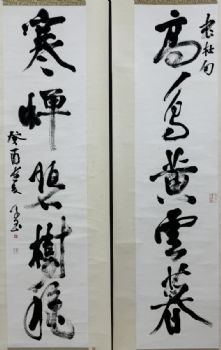 老杜句
高鳥黄雲暮
寒蟬碧樹穐
癸酉